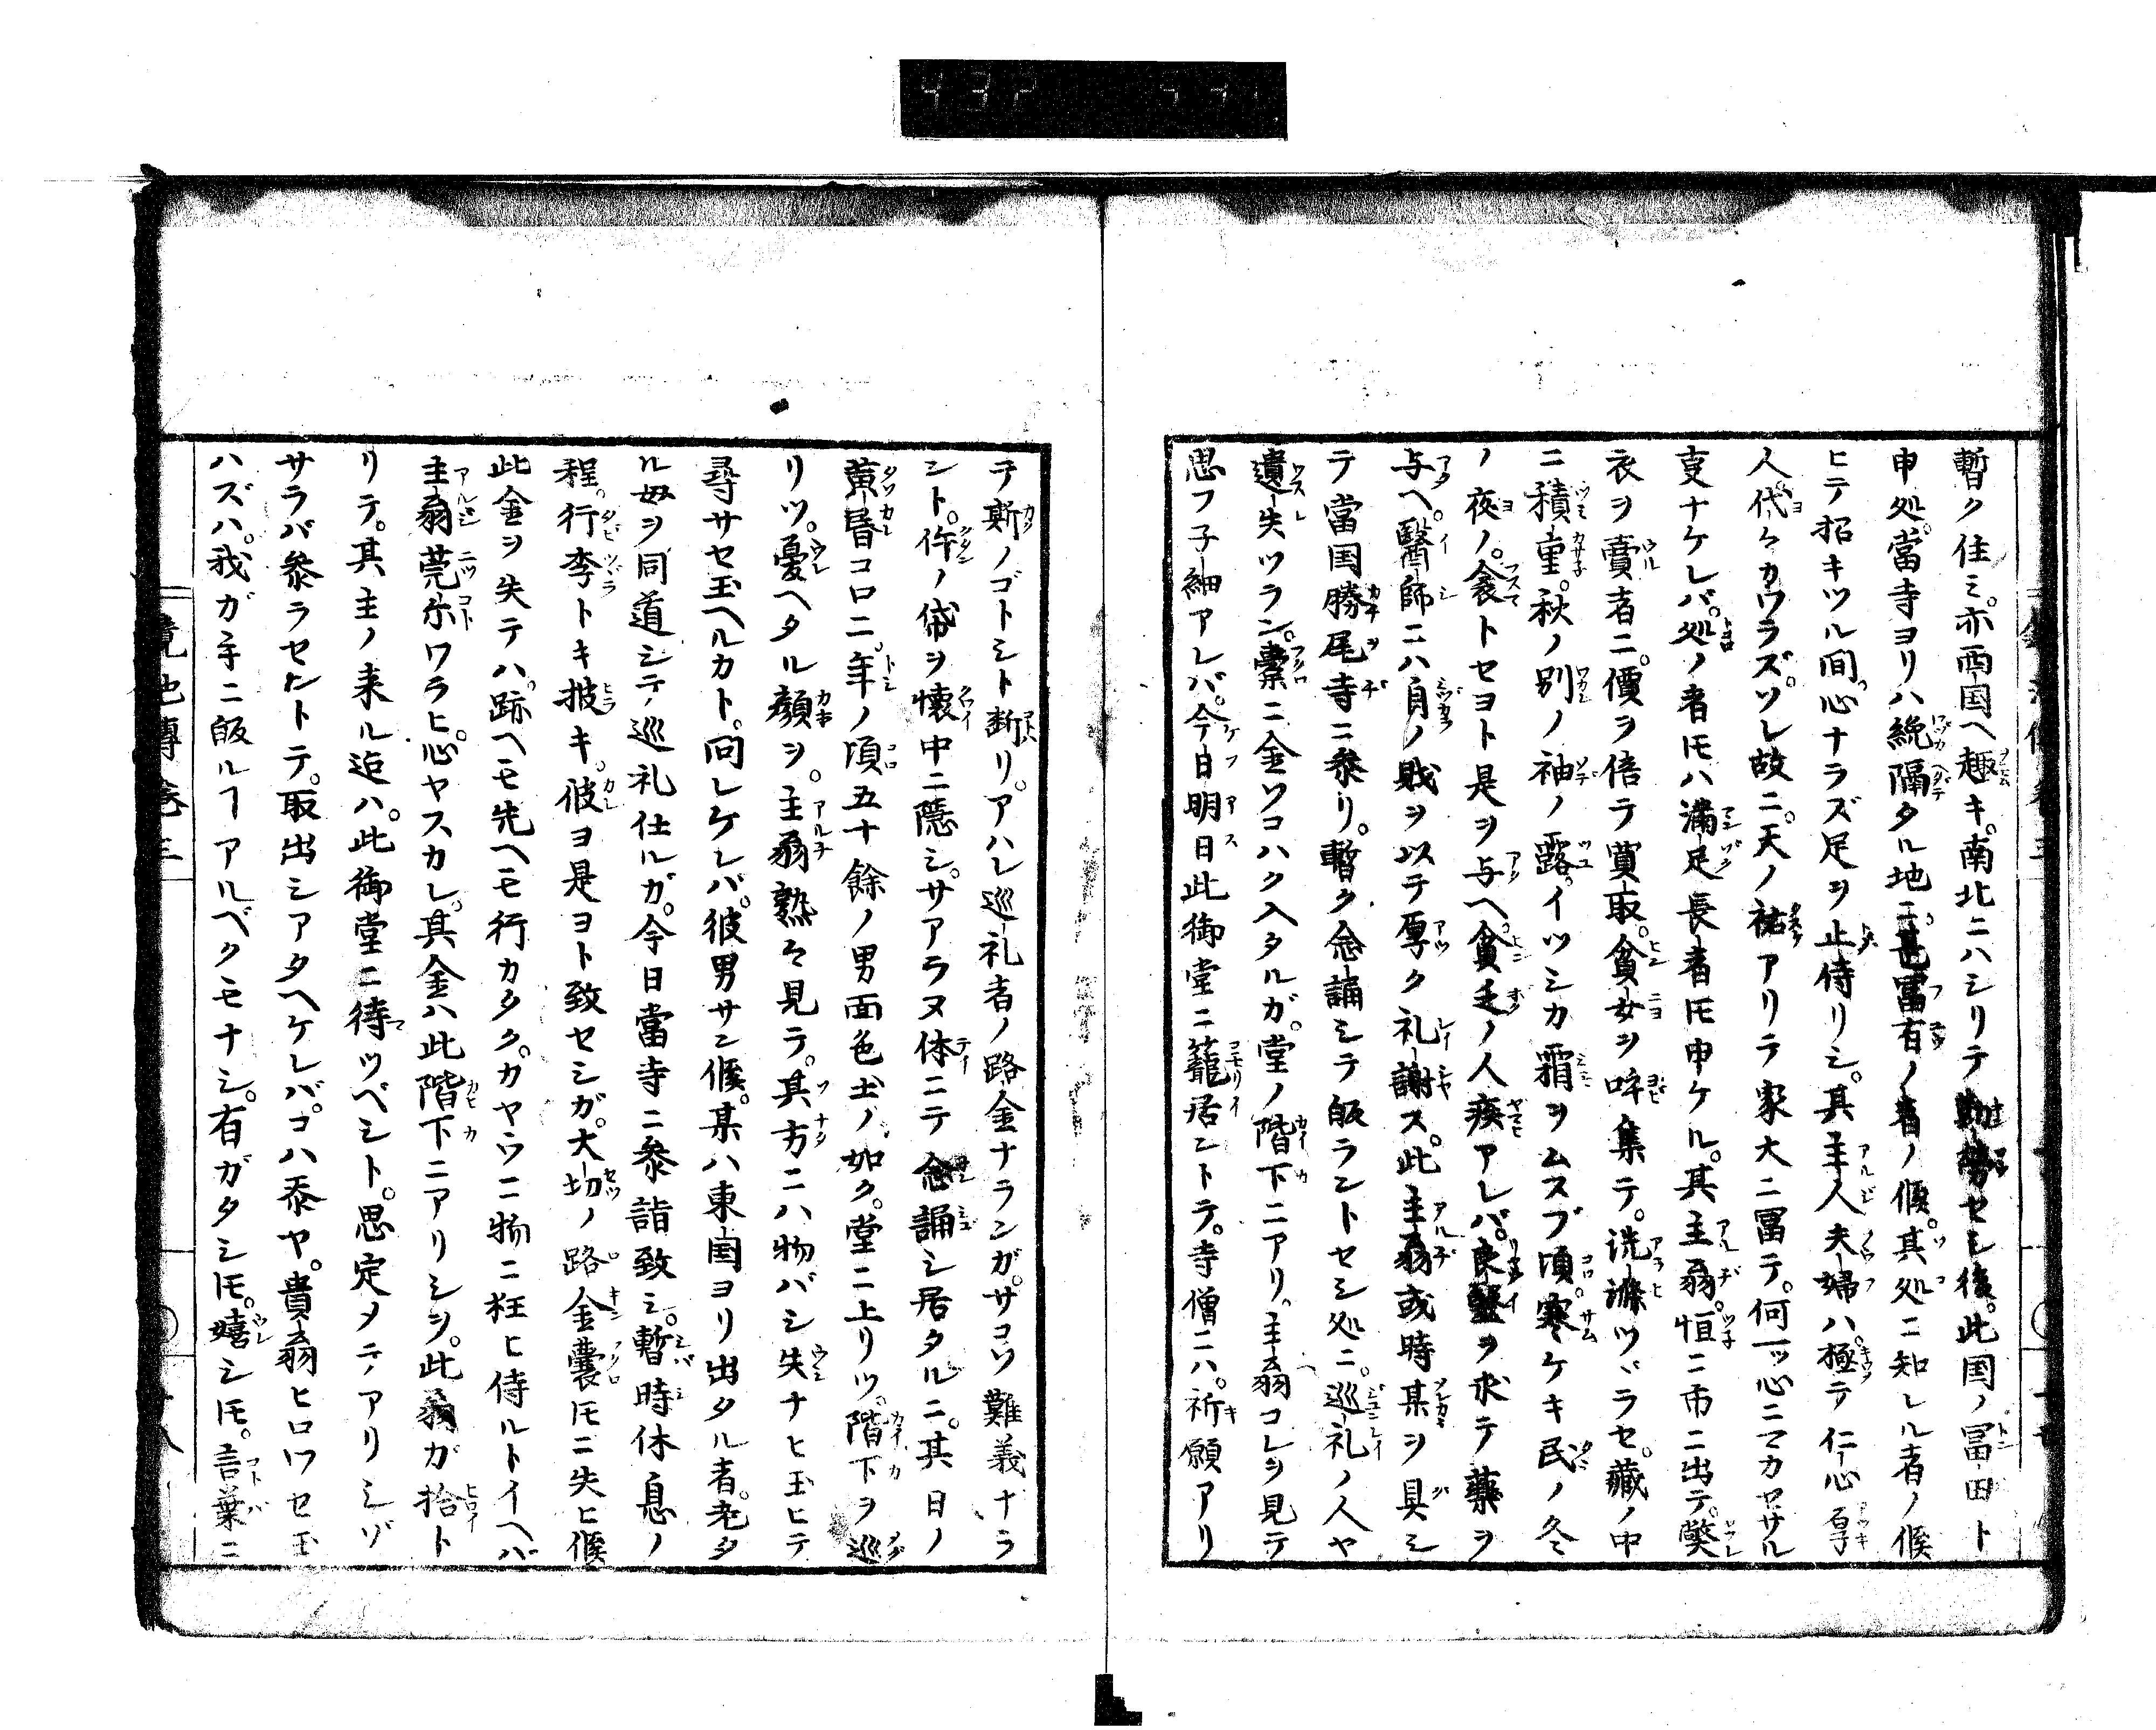 暫ク住ミ。亦両国ヘ趣キ。南北ニハシリテ勤労セシ後。此国ノ冨田ト
申処。當寺ヨリハ纔隔タル地ニ。甚冨有ノ者ノ候。其処ニ知レル者ノ候
ヒテ招キツル間。心ナラズ足ヲ止侍リシ。其主人夫婦ハ極テ仁心厚
人代ケカワラズ。ソレ故ニ。天ノ祐アリテ家大ニ冨テ。何一ッ心ニマカセザル
叓ナケレバ。処ノ者𪜈ハ満足長者𪜈申ケル。其主翁。恒ニ市ニ出テ。獘
衣ヲ賣者ニ。價ヲ倍テ買取。貧女ヲ呼集テ。洗滌ツヾラセ。藏ノ中
ニ積重。秋ノ別ノ袖ノ露。イツシカ霜ヲムスブ頃。寒ケキ民ノ冬
ノ夜ノ。衾トセヨト是ヲ与ヘ。貧乏ノ人疾アレバ。良醫ヲ求テ藥ヲ
与ヘ。醫師ニハ自ノ賎ヲ以テ厚ク礼謝ス。此主翁或時某ヲ具シ
テ當国勝尾寺ニ参リ。暫ク念誦シテ皈ラントセシ処ニ。巡礼ノ人ヤ
遺失ツラン。嚢ニ金ソコハク入タルガ。堂ノ階下ニアリ。主翁コレヲ見テ
思フ子細アレバ。今日明日此御堂ニ籠居ントテ。寺僧ニハ。祈願アリ
テ斯ノゴトシト断リ。アハレ巡礼者ノ路金ナランガ。サコソ難義ナラ
ント。件ノ帒ヲ懐中ニ隠シ。サアラヌ体ニテ念誦シ居タルニ。其日ノ
黄昏コロニ。年ノ頃五十餘ノ男面色土ノ如ク。堂ニ上リツ。階下ヲ巡
リツ。憂ヘタル顔ヲ。主翁熟々見テ。其方ニハ物バシ失ナヒ玉ヒテ
尋サセ玉ヘルカト。問レケレバ。彼男サン候。某ハ東国ヨリ出タル者。老タ
ル母ヲ同道シテ巡礼仕ルガ。今日當寺ニ参詣致シ。暫時休息ノ
程。行李トキ披キ。彼ヨ是ヨト致セシガ。大切ノ路金嚢𪜈ニ失ヒ候
此金ヲ失テハ。跡ヘモ先ヘモ行カタク。カヤウニ物ニ狂ヒ侍ルトイヘバ
主翁莞尓ワラヒ。心ヤスカレ。其金ハ此階下ニアリシヲ。此翁ガ拾ト
リテ。其主ノ来ル迠ハ。此御堂ニ待ツベシト。思定メテアリシゾ
サラバ参ラセントテ。取出シアタヘケレバ。コハ忝ヤ。貴翁ヒロワセ玉
ハズハ。我ガ手ニ皈ルヿアルベクモナシ。有ガタシ𪜈。嬉シ𪜈。言葉ニ